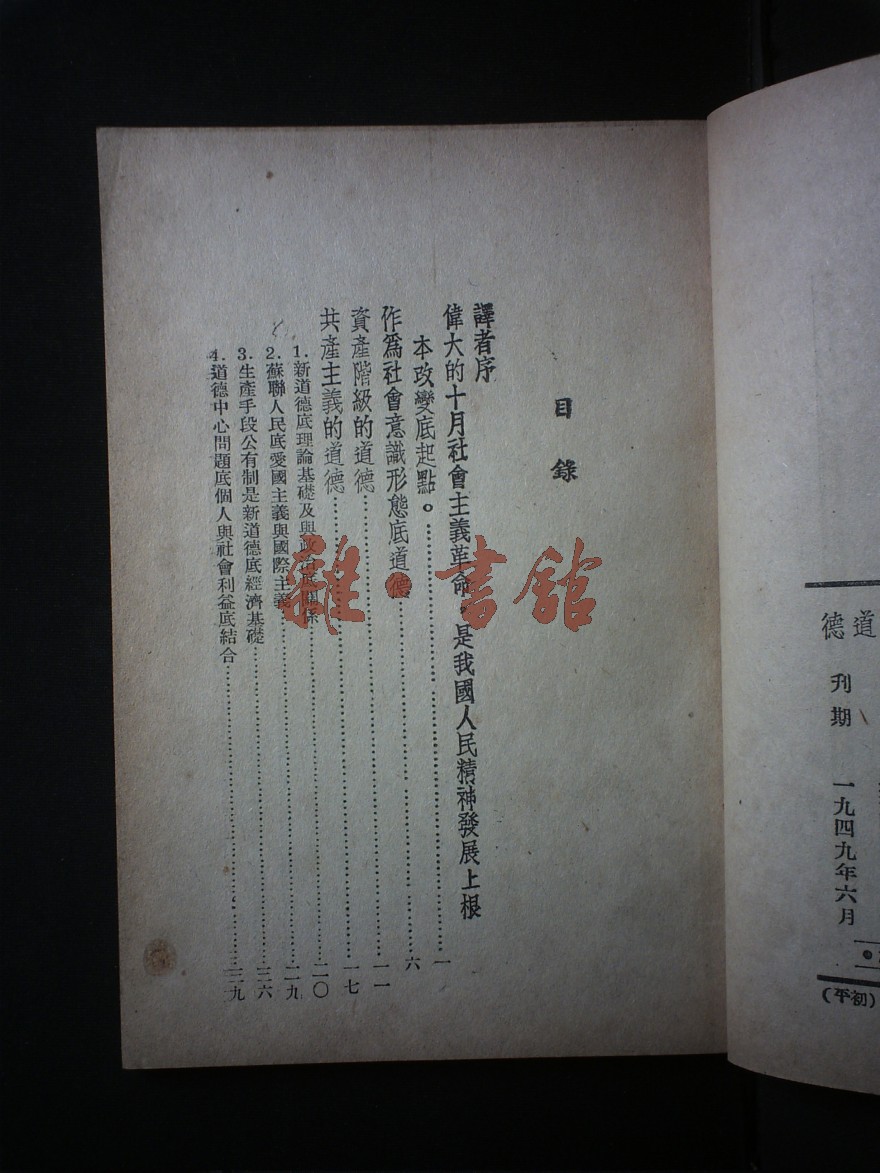 道德
刊期 一九四九年六月
(初平)
目錄
譯者序
偉大的十月社會主義革命，是我國人民精神發展上根
本改變底起點。……一
作爲社會意識形態底道德……六
資產階級的道德……一一
共產主義的道德……一七
1.新道德底理論基礎及與政治底關係……二〇
2.蘇聯人民底愛國主義與國際主義……二九
3.生產手段公有制是新道德底經濟基礎……三六
4.道德中心問題底個人與社會利益底結合……三九
雜·書館